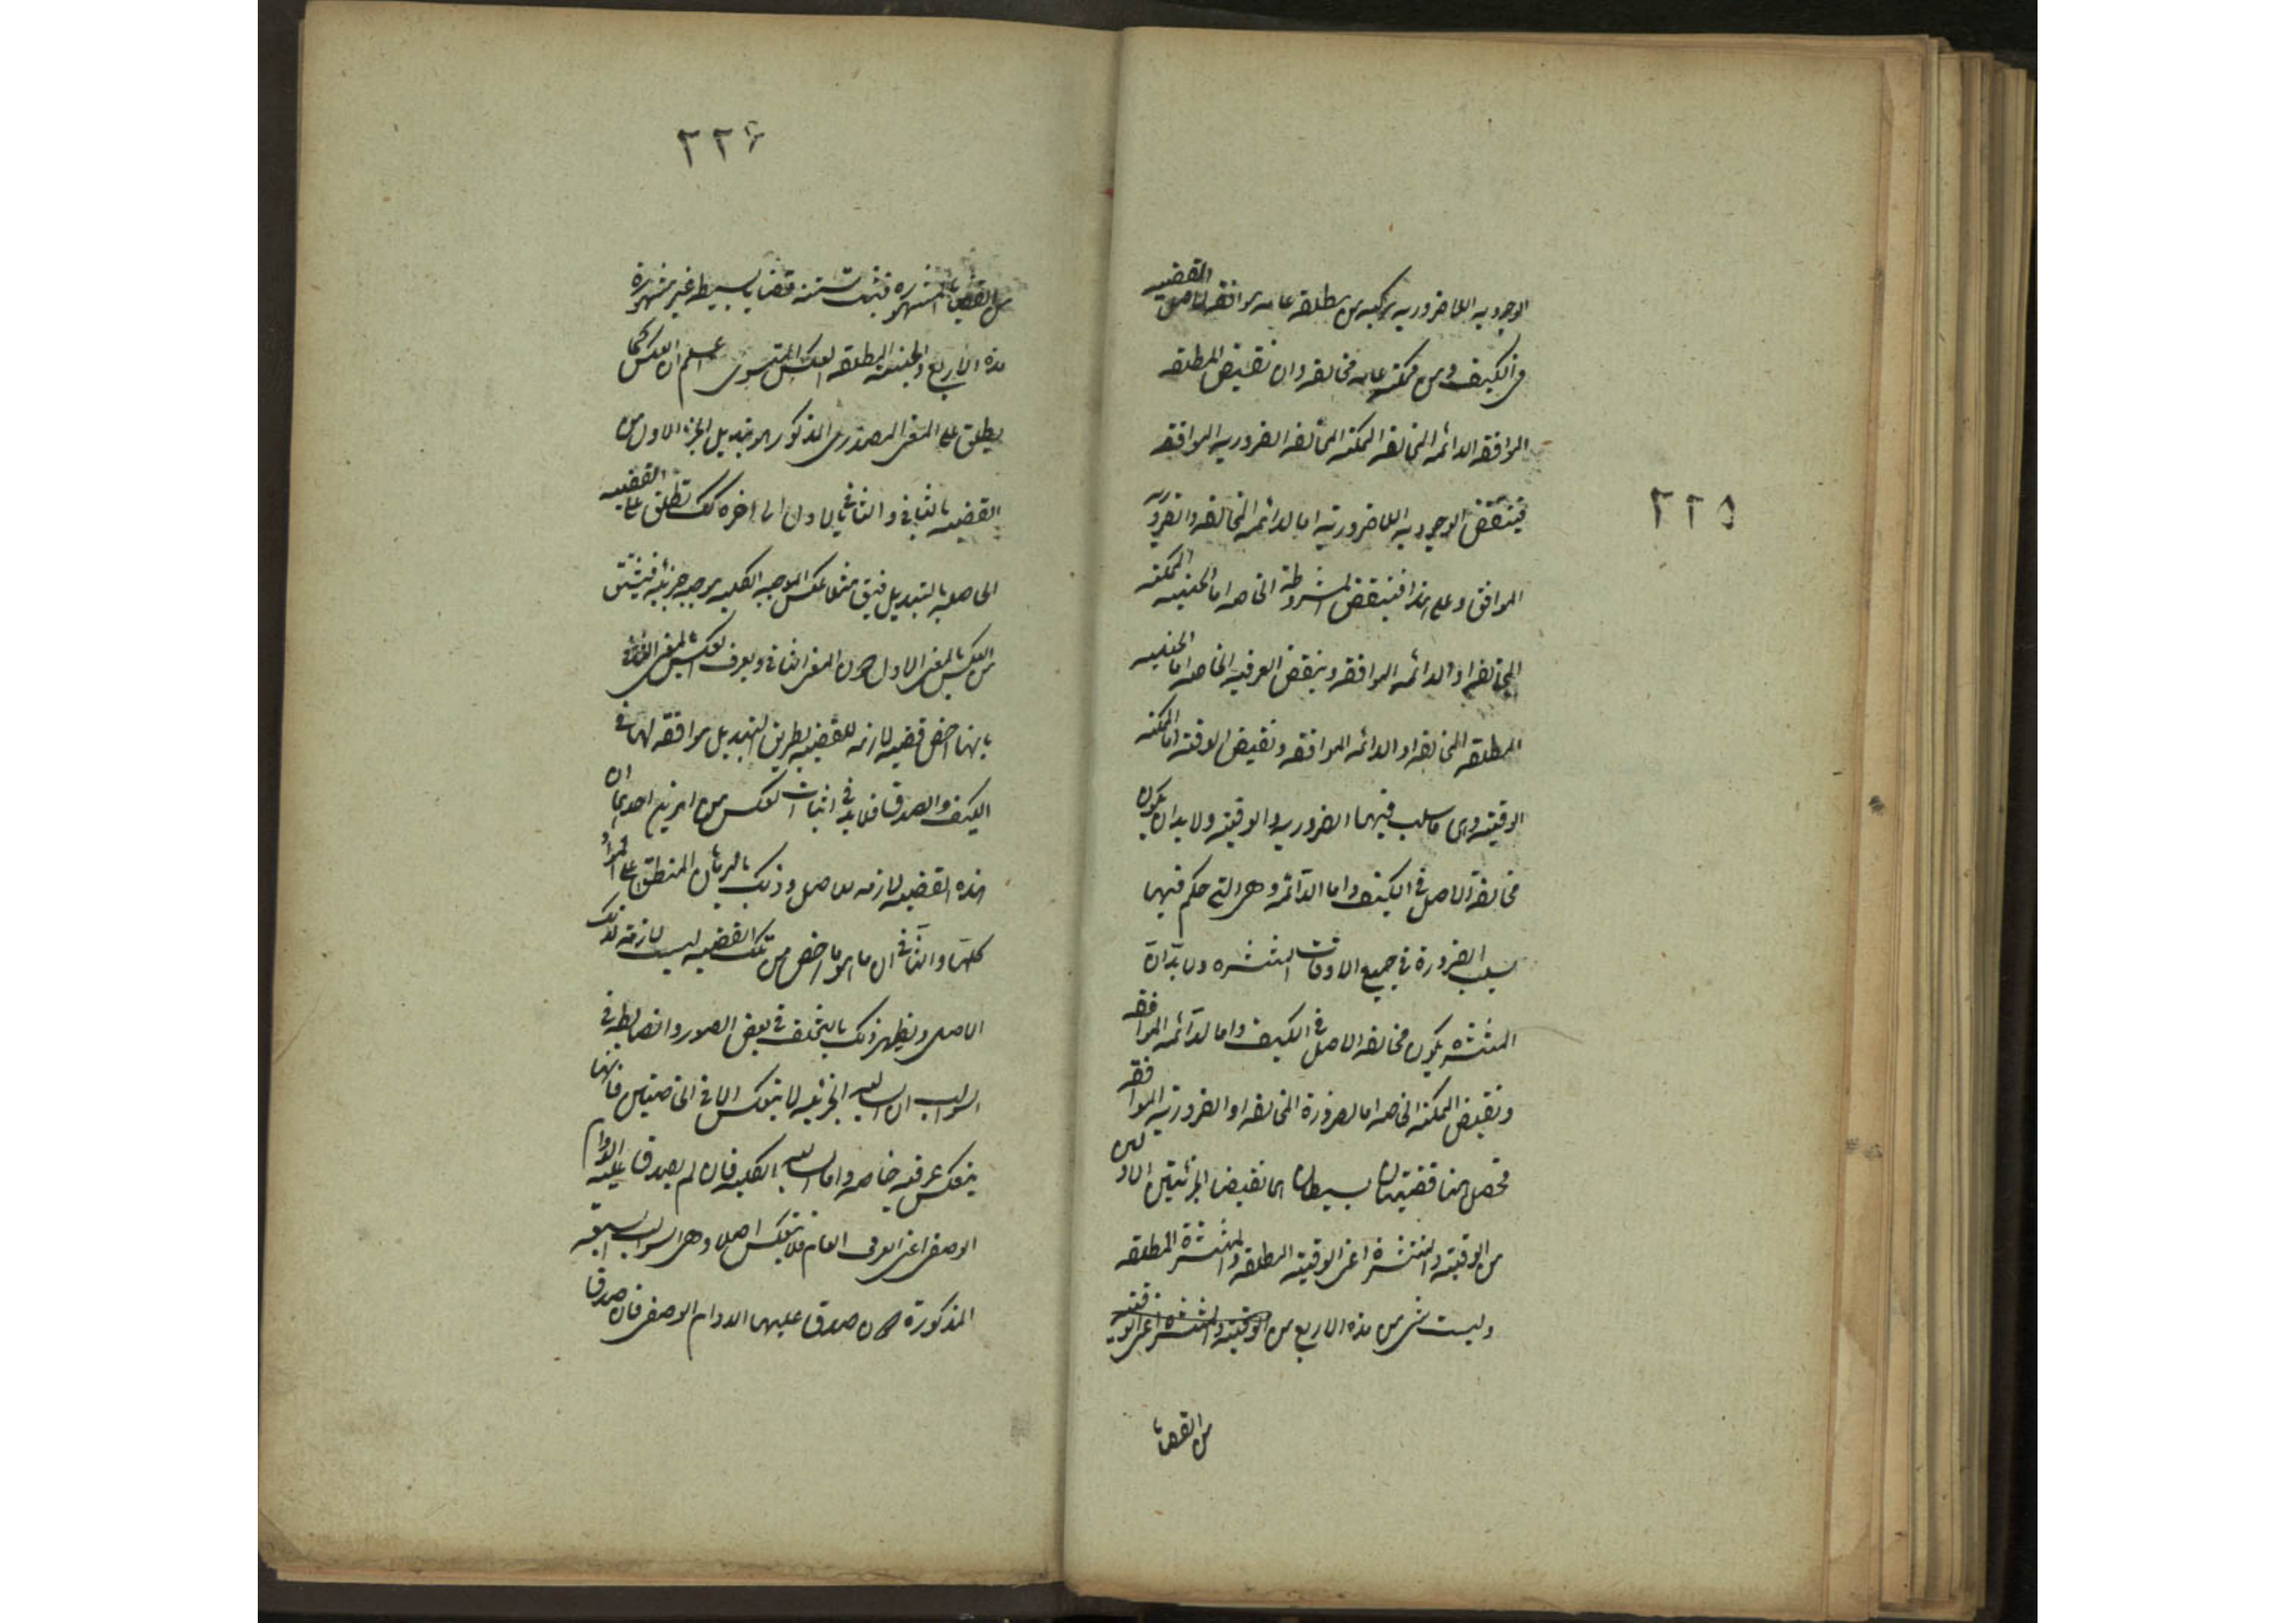 ٢٢٥
الوجوديه اللاضروريه مركبه من مطلقه عامه موافقه لاصل القضيه
فى الكيف ومن ممكنه عامه مخالفه وان نقيض المطلقه
الموافقه الدائمه المخالفه الممكنه المخالفه الضروريه الموافقه
فينقض الوجوديه اللاضروريه اما لدائمه المخالفه والضروريه
الموافق وعلى هذا فينقض المشروطة الخاصه اما الحينيه الممكنه
المخالفه او الدائمه الموافقه وينقض العرفيه الخاصه اما الحينيه
المطلقه المخالفه او الدائمه الموافقه ونقيض الوقته اما الممكنه
الوقتيه وهى ما سلب فيهما الضروريه الوقتيه ولا بد ان يكون
مخالفة الاصل فى الكيف واما الدآئمه وهى التى حكم فيهما
بسلب الضرورة فى جميع الاوقات المنتشره ولا بد ان
المنتشره يكون مخالفه الاصل فى الكيف واما لدآئمه الموافقه
ونقيض الممكنه الخاصه اما لضرورة المخالفه او الضروريه الموافقه
فحصل هنا قضيتان بسيطان هما نقيضا الجزئيتين الاولين
من الوقتيه والمنتشرة اعنى الوقتيه المطلقه والمنتشرة المطلقه
وليست شى من هذه الاربع من الوقتيه والمنتشره اعنى الوقتيه
من القضايا
٢٢٦
من القضايا المشهوره فثبت ستته قضايا بسيطه غير مشهورة
هذه الاربع والحينيه المطلقه العكس المستوى اعلم ان العكس كما
يطلق على المعنى المصدرى المذكور هو تبديل الجزء الاول من
القضيه بالثانى والثانى بالاول الى اخره كك تطلق على القضيه
الحاصله بالتبديل فيق مثلا عكس الموجبه الكليه موجبه جزئيه فيشتق
من العكس بالمعنى الاول دون المعنى الثانى ويعرف العكس بالمعنى الثانى
بانها اخص قضيه لازمه للقضيه بطريق التبديل موافقه لها فى
الكيف والصدق فلابد فى اثبات العكس من امرين احدهما ان
هذه القضيه لازمه للاصل وذلك بالبرهان المنطبق على المواد
كلها والثانى ان ما هو اخص من تلك القضيه ليست لازمة لذلك
الاصل ويظهر ذلك بالتخلف فى بعض الصور والضابطه فى
السوالب ان السالبه الجزئيه لا ينعكس الا فى الخاصتين فانها
ينعكس عرفيه خاصه واما السالبه الكليه فان لم يصدق عليه الدوام
الوصفى اعنى العرفى العام فلا ينعكس اصلا وهى السوالب السبعه
المذكورة وان صدق عليهما الدوام الوصفى فان صدق